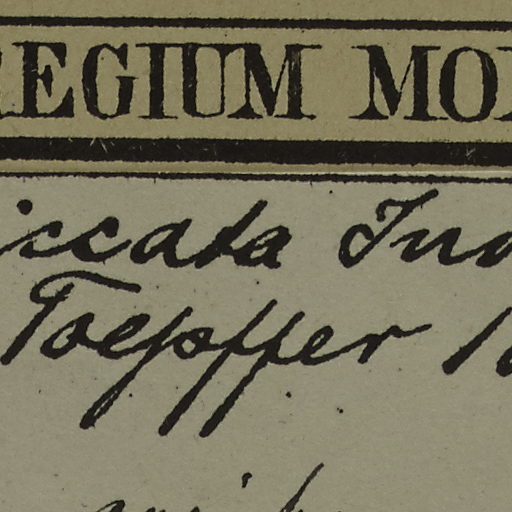 REGIUM MO
iccata Ind
Toepffer 18